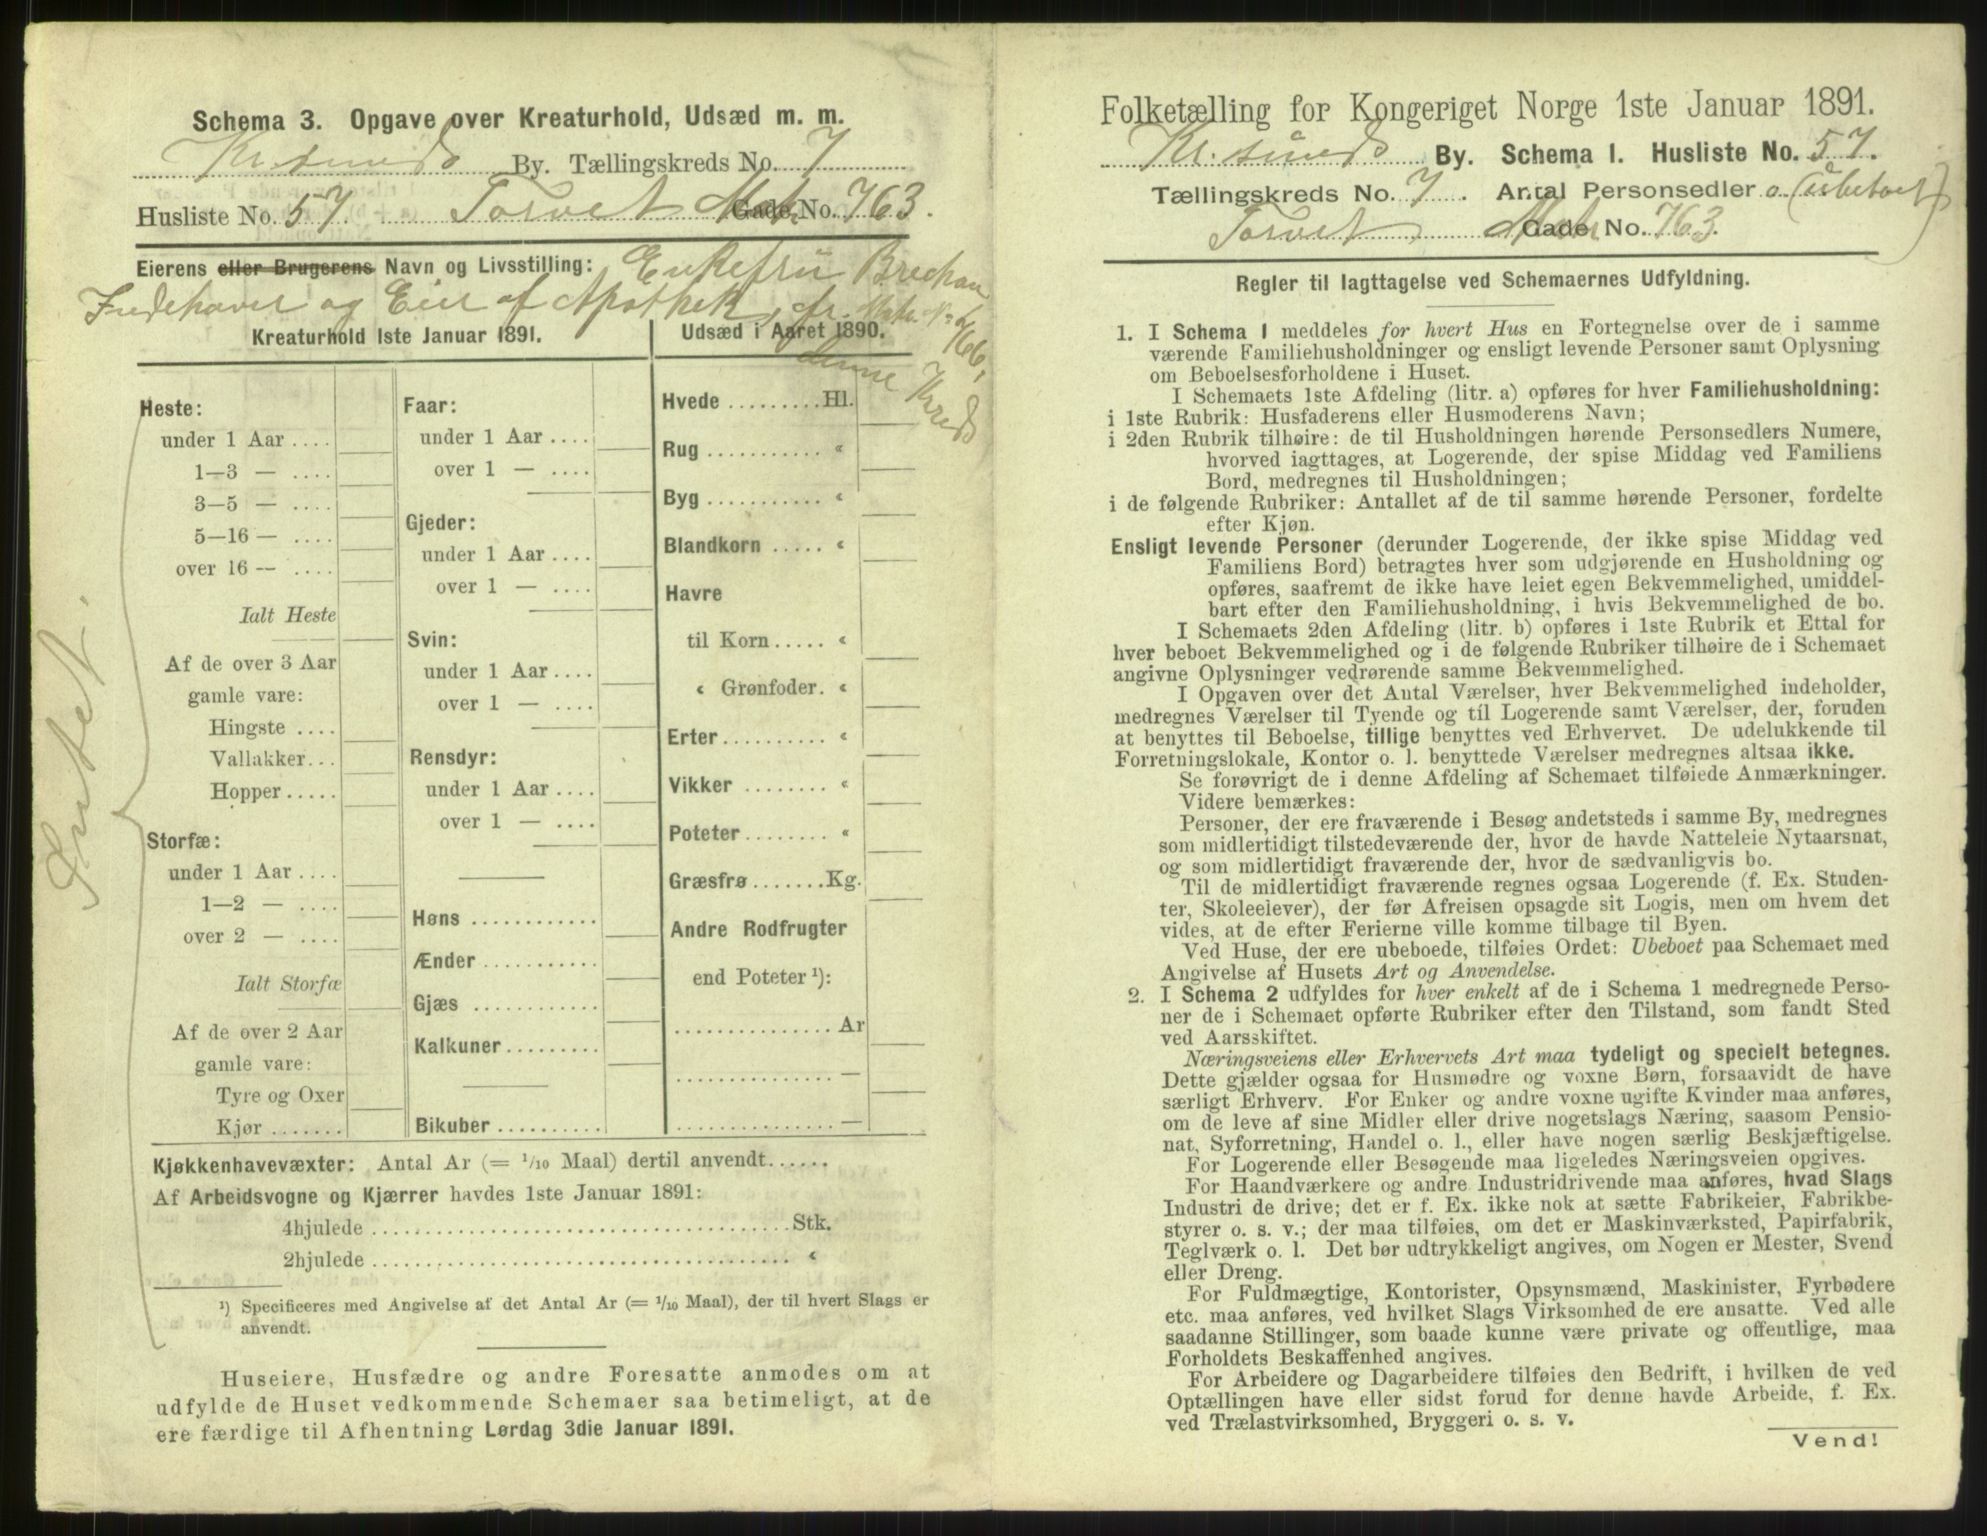 Schema 3. Opgave over Kreaturhold, Udsæd m. m.
Kr.sunds By. Tællingskreds No. 7
Husliste No. 57. Torvet Matr. Gade No. 763.
Eierens eller Brugerens Navn og Livsstilling: Enkefru Brechan
Indehaver og Eier af Apothek, cfr. Matr. No. 766,
denne Kreds
Kreaturhold 1ste Januar 1891.
Udsæd i Aaret 1890.
Intet.
Heste:
under 1 Aar ....
1—3 — ....
3—5 — ....
5—16 — ....
over 16 — ....
Ialt Heste
Af de over 3 Aar
gamle vare:
Hingste ....
Vallakker...
Hopper.....
Storfæ:
under 1 Aar ....
1—2 — ....
over 2 — ....
Ialt Storfæ
Af de over 2 Aar
gamle vare:
Tyre og Oxer
Kjør .......
Faar:
under 1 Aar ....
over 1 — ....
Gjeder:
under 1 Aar ....
over 1 — ....
Svin:
under 1 Aar ....
over 1 — ....
Rensdyr:
under 1 Aar ....
over 1 — ....
Høns ............
Ænder ...........
Gjæs ............
Kalkuner.........
Bikuber ..........
Hvede .........Hl.
Rug ........... «
Byg ........... «
Blandkorn ..... «
Havre
til Korn ..... «
« Grønfoder. «
Erter.......... «
Vikker ........ «
Poteter........ «
Græsfrø.......Kg.
Andre Rodfrugter
end Poteter ¹):
............... Ar
............... —
............... —
Kjøkkenhavevæxter: Antal Ar (= 1/10 Maal) dertil anvendt......
Af Arbeidsvogne og Kjærrer havdes 1ste Januar 1891:
4hjulede ........................................Stk.
2hjulede ........................................ «
¹) Specificeres med Angivelse af det Antal Ar (= 1/10 Maal), der til hvert Slags er
anvendt.
Huseiere, Husfædre og andre Foresatte anmodes om at
udfylde de Huset vedkommende Schemaer saa betimeligt, at de
ere færdige til Afhentning Lørdag 3die Januar 1891.
Folketælling for Kongeriget Norge 1ste Januar 1891.
Kr.sunds By. Schema 1. Husliste No. 57.
Tællingskreds No. 7. Antal Personsedler 0. (Ubeboet)
Torvet Matr. Gade No. 763.
Regler til Iagttagelse ved Schemaernes Udfyldning.
1. I Schema 1 meddeles for hvert Hus en Fortegnelse over de i samme
værende Familiehusholdninger og ensligt levende Personer samt Oplysning
om Beboelsesforholdene i Huset.
I Schemaets 1ste Afdeling (litr. a) opføres for hver Familiehusholdning:
i 1ste Rubrik: Husfaderens eller Husmoderens Navn;
i 2den Rubrik tilhøire: de til Husholdningen hørende Personsedlers Numere,
hvorved iagttages, at Logerende, der spise Middag ved Familiens
Bord, medregnes til Husholdningen;
i de følgende Rubriker: Antallet af de til samme hørende Personer, fordelte
efter Kjøn.
Ensligt levende Personer (derunder Logerende, der ikke spise Middag ved
Familiens Bord) betragtes hver som udgjørende en Husholdning og
opføres, saafremt de ikke have leiet egen Bekvemmelighed, umiddel-
bart efter den Familiehusholdning, i hvis Bekvemmelighed de bo.
I Schemaets 2den Afdeling (litr. b) opføres i 1ste Rubrik et Ettal for
hver beboet Bekvemmelighed og i de følgende Rubriker tilhøire de i Schemaet
angivne Oplysninger vedrørende samme Bekvemmelighed.
I Opgaven over det Antal Værelser, hver Bekvemmelighed indeholder,
medregnes Værelser til Tyende og til Logerende samt Værelser, der, foruden
at benyttes til Beboelse, tillige benyttes ved Erhvervet. De udelukkende til
Forretningslokale, Kontor o. l. benyttede Værelser medregnes altsaa ikke.
Se forøvrigt de i denne Afdeling af Schemaet tilføiede Anmærkninger.
Videre bemærkes:
Personer, der ere fraværende i Besøg andetsteds i samme By, medregnes
som midlertidigt tilstedeværende der, hvor de havde Natteleie Nytaarsnat,
og som midlertidigt fraværende der, hvor de sædvanligvis bo.
Til de midlertidigt fraværende regnes ogsaa Logerende (f. Ex. Studen-
ter, Skoleelever), der før Afreisen opsagde sit Logis, men om hvem det
vides, at de efter Ferierne ville komme tilbage til Byen.
Ved Huse, der ere ubeboede, tilføies Ordet: Ubeboet paa Schemaet med
Angivelse af Husets Art og Anvendelse.
2. I Schema 2 udfyldes for hver enkelt af de i Schema 1 medregnede Perso-
ner de i Schemaet opførte Rubriker efter den Tilstand, som fandt Sted
ved Aarsskiftet.
Næringsveiens eller Erhvervets Art maa tydeligt og specielt betegnes.
Dette gjælder ogsaa for Husmødre og voxne Børn, forsaavidt de have
særligt Erhverv. For Enker og andre voxne ugifte Kvinder maa anføres,
om de leve af sine Midler eller drive nogetslags Næring, saasom Pensio-
nat, Syforretning, Handel o. l., eller have nogen særlig Beskjæftigelse.
For Logerende eller Besøgende maa ligeledes Næringsveien opgives.
For Haandværkere og andre Industridrivende maa anføres, hvad Slags
Industri de drive; det er f. Ex. ikke nok at sætte Fabrikeier, Fabrikbe-
styrer o. s. v.; der maa tilføies, om det er Maskinværksted, Papirfabrik,
Teglværk o. l. Det bør udtrykkeligt angives, om Nogen er Mester, Svend
eller Dreng.
For Fuldmægtige, Kontorister, Opsynsmænd, Maskinister, Fyrbødere
etc. maa anføres, ved hvilket Slags Virksomhed de ere ansatte. Ved alle
saadanne Stillinger, som baade kunne være private og offentlige, maa
Forholdets Beskaffenhed angives.
For Arbeidere og Dagarbeidere tilføies den Bedrift, i hvilken de ved
Optællingen have eller sidst forud for denne havde Arbeide, f. Ex.
ved Trælastvirksomhed, Bryggeri o. s. v.
Vend!